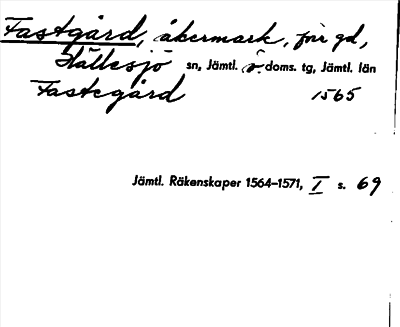 Fastgård, åkermark, förr gd,
Hällesjö sn, Jämtl. ö. doms. tg, Jämtl. län
Fastegård 1565
Jämtl. Räkenskaper 1564-1571, I s. 69